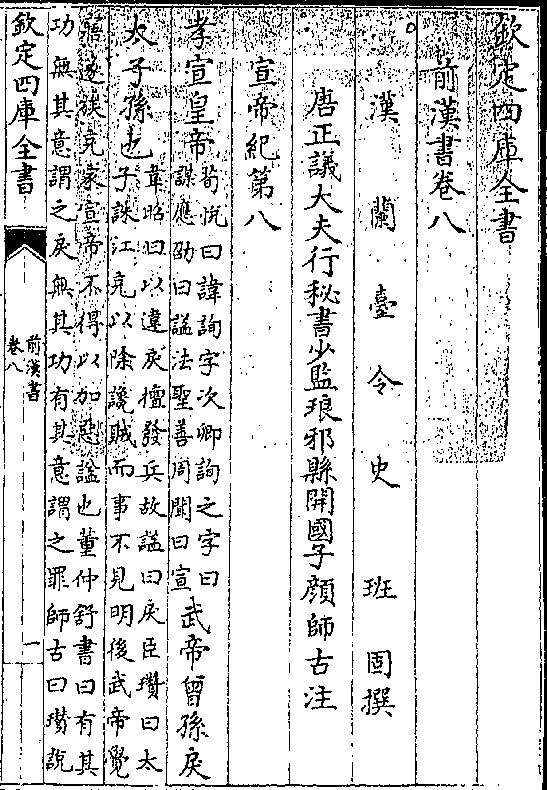 欽定四庫全書
前漢書卷八
漢蘭臺令史班固撰
唐正議大夫行秘書少監琅邪縣開國子顏師古注
宣帝紀第八
孝宣皇帝
荀悅曰諱詢字次卿詢之字曰
謀應劭曰諡法聖善周聞曰宣
武帝曾孫戾
太子孫也
韋昭曰以違戾擅發兵故諡曰戾臣瓚曰太
子誅江充以除讒賊而事不見明後武帝覺
寤遂族充家宣帝不得以加惡諡也董仲舒書曰有其
功無其意謂之戾無其功有其意謂之罪師古曰瓚說
欽定四庫全書
前漢書
卷八
一